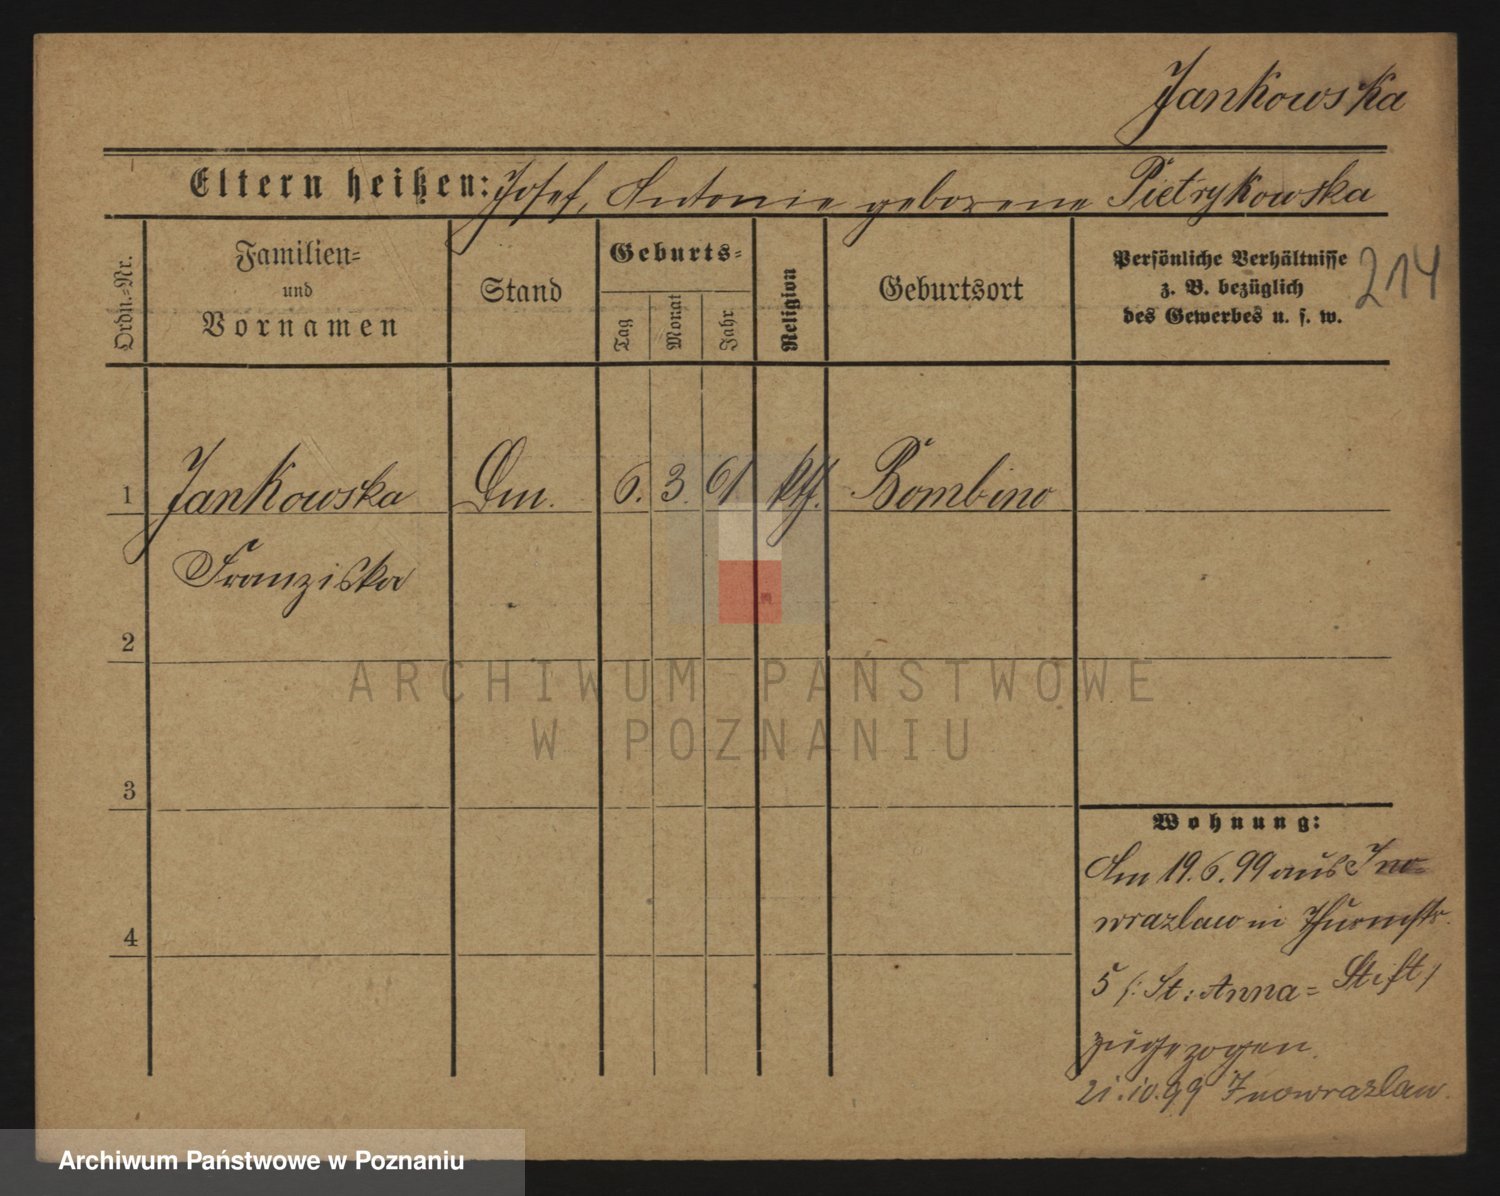 Jankowska
Eltern heißen: Josef, Antonie geborene Pietrykowska
Ordn.-Nr.
Familien-
und
Vornamen
Stand
Geburts-
Tag
Monat
Jahr
Religion
Geburtsort
Persönliche Verhältnisse
z. B. bezüglich
des Gewerbes u. s. w.
214
1 Jankowska 6. 3. 61 Bombino
Franziska
2
3
4
Wohnung:
Am 19.6.99 aus Ino-
wrazlaw in Thurmstr.
5 /: St: Anna= Stift /
zugezogen.
21.10.99 Inowrazlaw.
ARCHIWUM PAŃSTWOWE
W POZNANIU
Archiwum Państwowe w Poznaniu